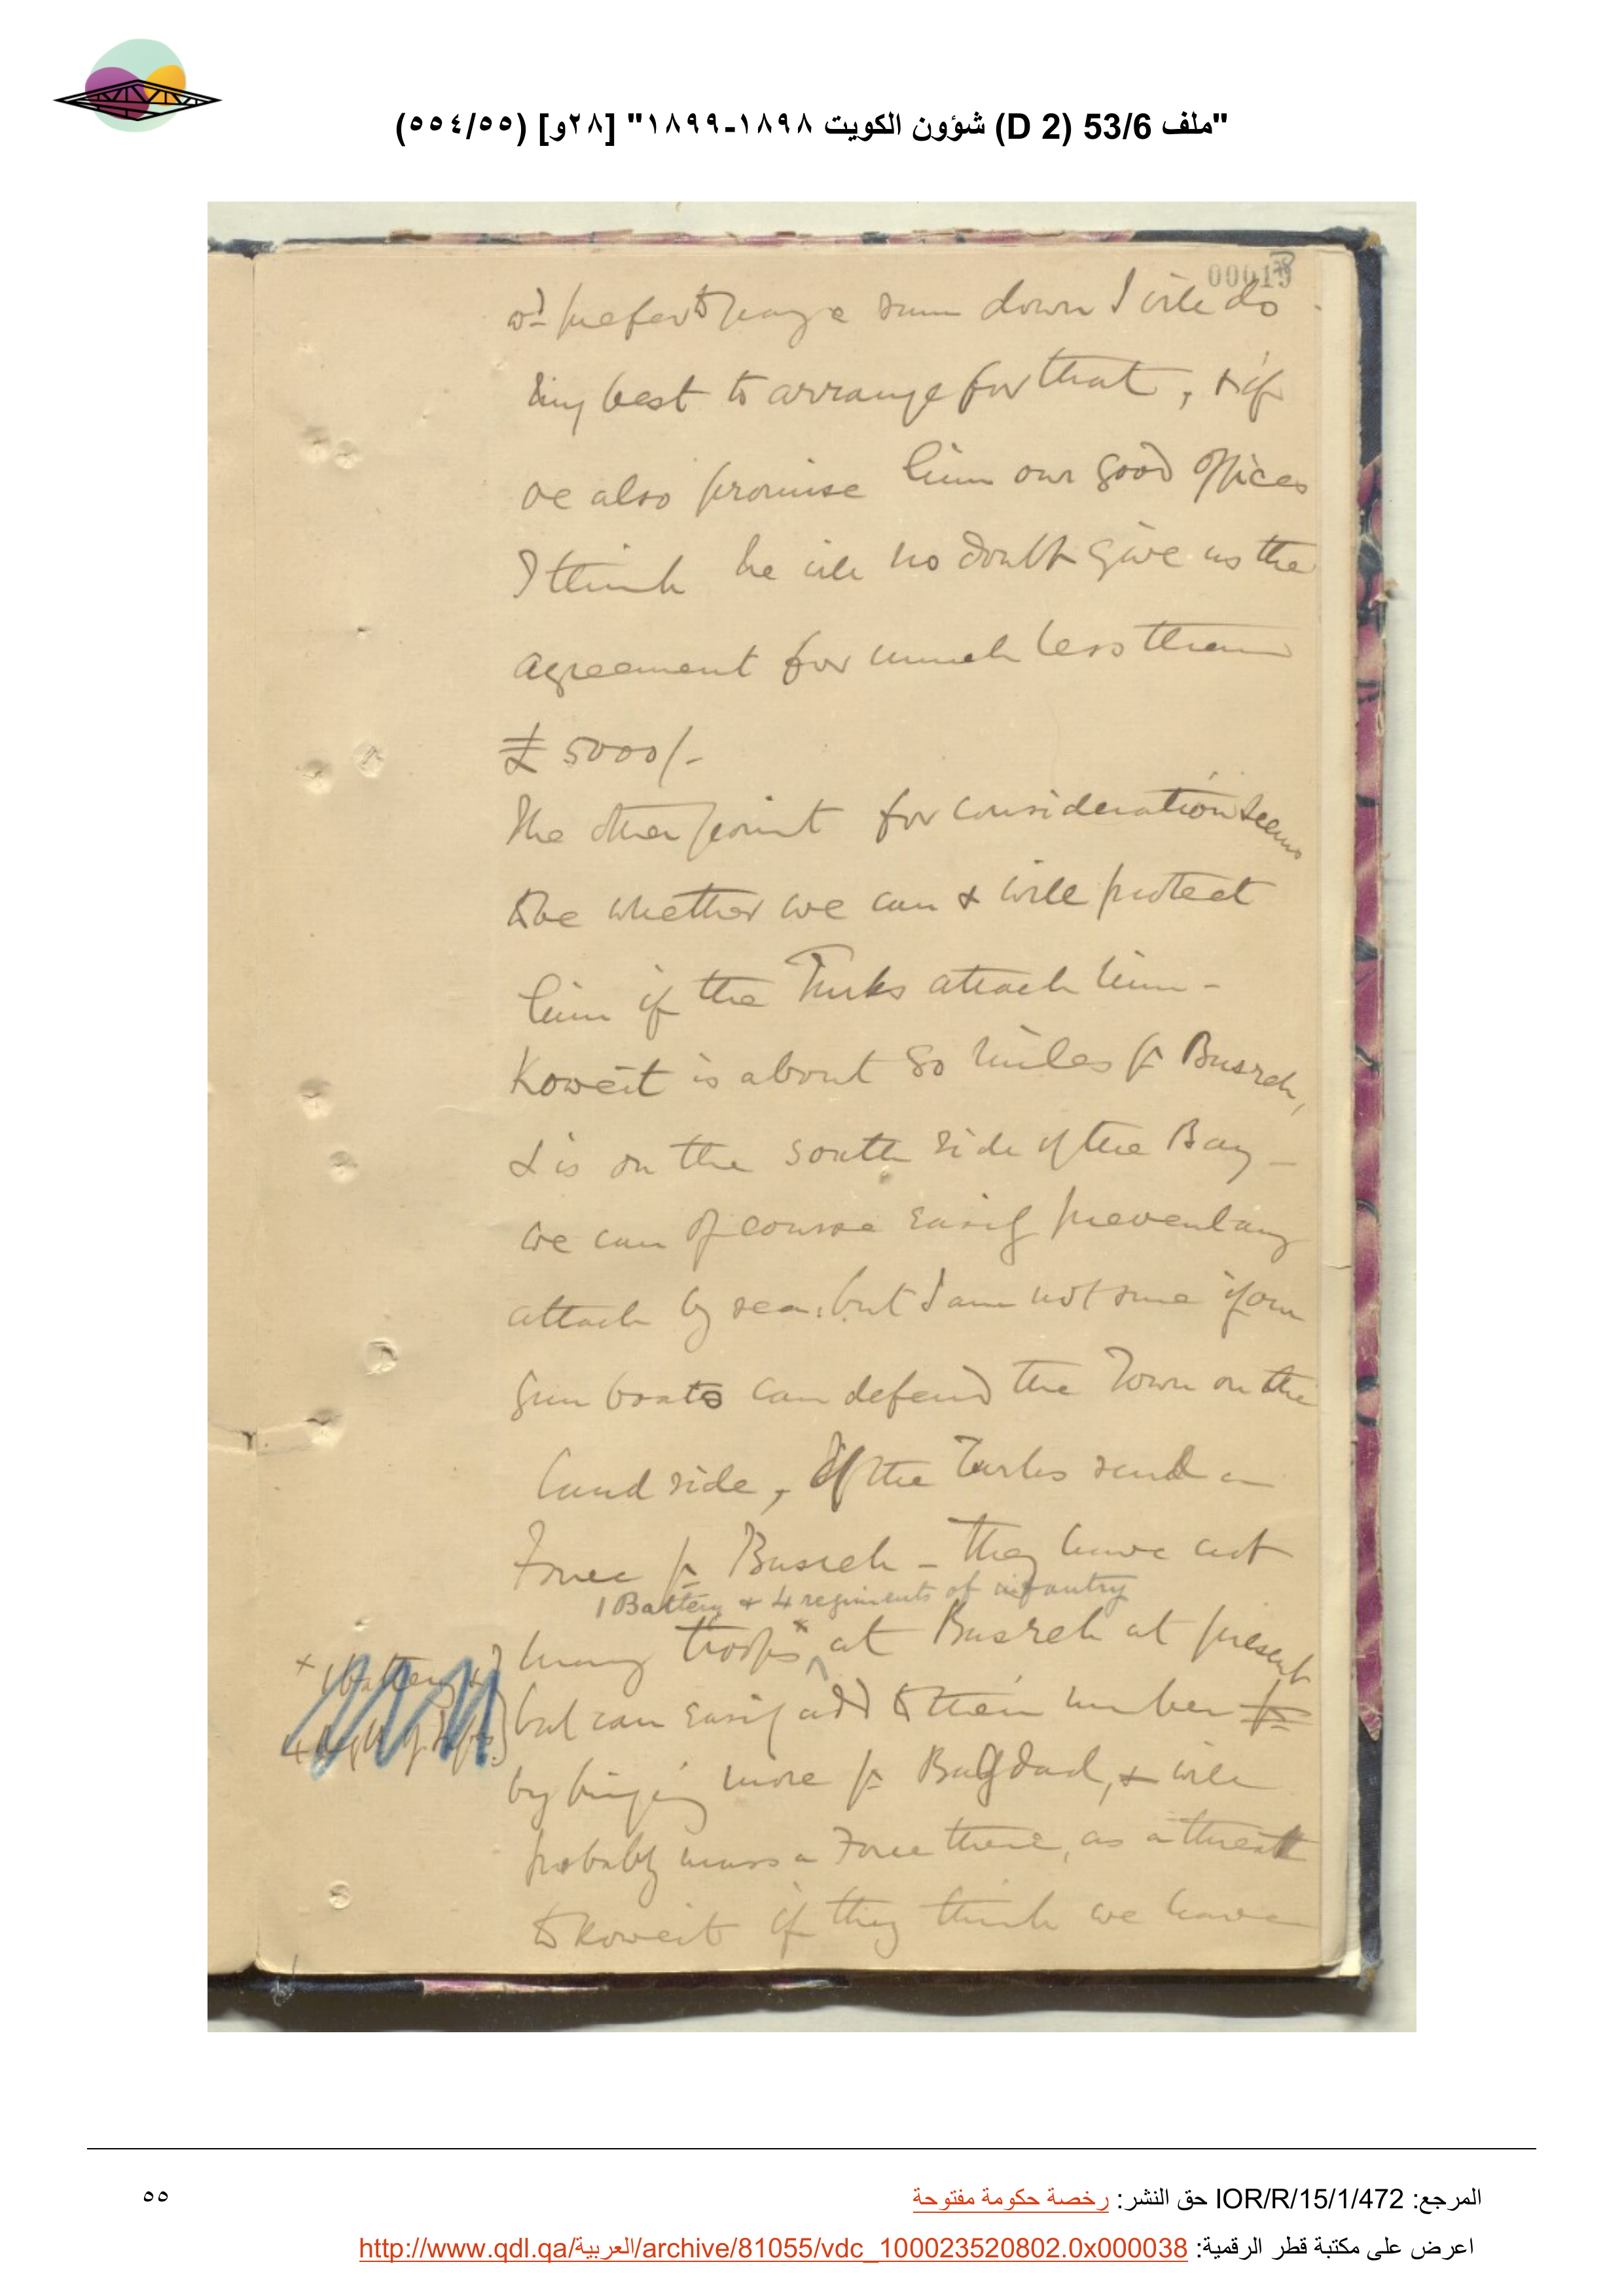 "ملف 53/6 (D 2) شؤون الكويت ١٨٩٨-١٨٩٩" [٢٨و] (٥٥/٥٥٤)
wd prefer to pay a sum down I will do
my best to arrange for that, & if
we also promise him our good offices
I think he will no doubt give us the
agreement for much less than
£ 5000/-
The other point for consideration seems
to be whether we can & will protect
him if the Turks attack him -
Koweit is about 80 miles fr Busreh,
& is on the south side of the Bay -
we can of course easily prevent any
attack by sea, but I am not sure if our
gun boats can defend the Town on the
land side, If the Turks send a
Force fr Busreh - they have not
1 Battery & 4 regiments of infantry
many troops x at Busreh at present
but can easily add to their number fr
by bringing more fr Bagdad, & will
probably mass a Force there, as a threat
to Koweit if they think we have
المرجع: IOR/R/15/1/472 حق النشر: رخصة حكومة مفتوحة
٥٥
اعرض على مكتبة قطر الرقمية: http://www.qdl.qa/العربية/archive/81055/vdc_100023520802.0x000038